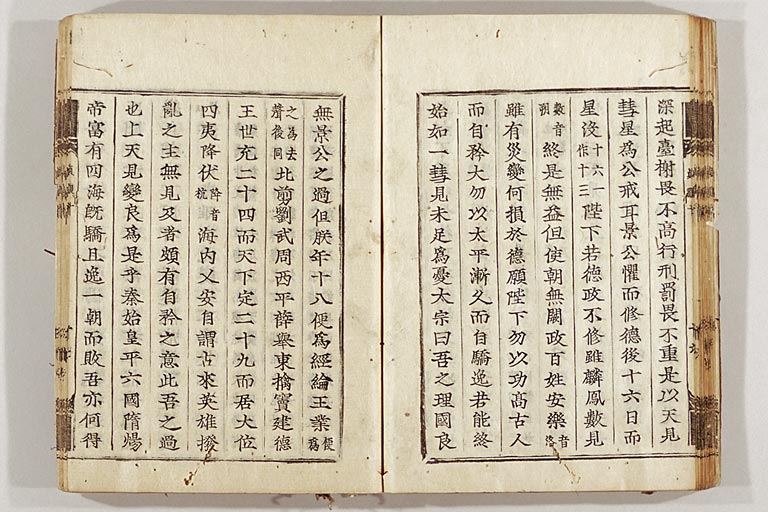 深起臺榭畏不高行刑罰畏不重是以天見
彗星爲公戒耳景公懼而修德後十六日而
星沒十六一作十三陛下若德政不修雖麟鳳數見
數音朔終是無益但使朝無闕政百姓安樂音洛
雖有災變何損於德願陛下勿以功高古人
而自矜大勿以太平漸久而自驕逸若能終
始如一彗見未足爲憂太宗曰吾之理國良
無景公之過但朕年十八便爲經綸王業便爲
之爲去聲後同北剪劉武周西平薛擧東擒竇建德
王世充二十四而天下定二十九而居大位
四夷降伏降音杭海內乂安自謂古來英雄撥
亂之主無見及者頗有自矜之意此吾之過
也上天見變良爲是乎秦始皇平六國隋煬
帝富有四海旣驕且逸一朝而敗吾亦何得